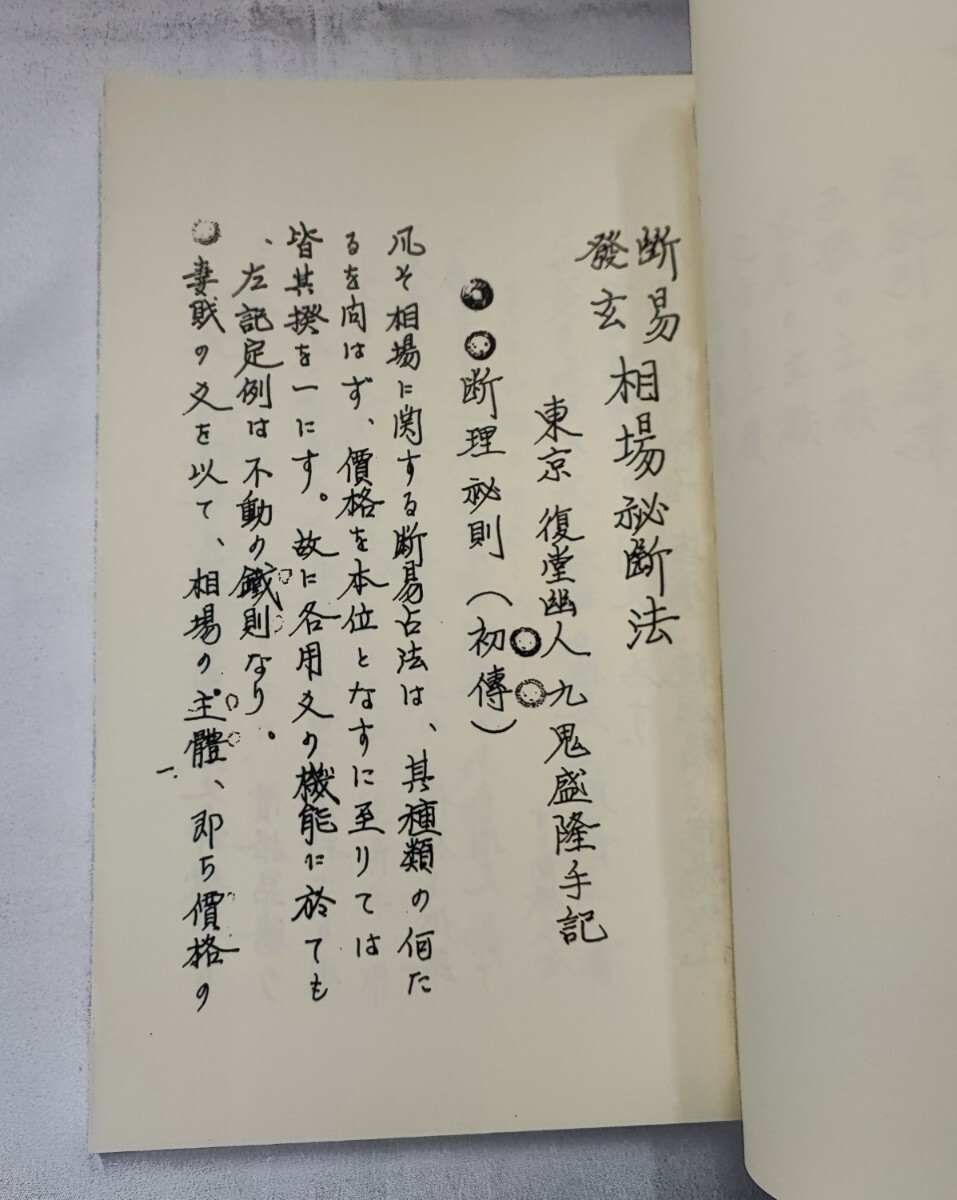 斷易
發玄
相場祕斷法
東京 復堂幽人 九鬼盛隆手記
断理祕則（初傳）
凡そ相場に関する断易占法は、其種類の何た
るを向はず、價格を本位となすに至りては
皆其揆を一にす。故に各用爻の機能に於ても
、左記定例は不動の鐵則なり。
妻戝の爻を以て、相場の主體、即ち價格の
一